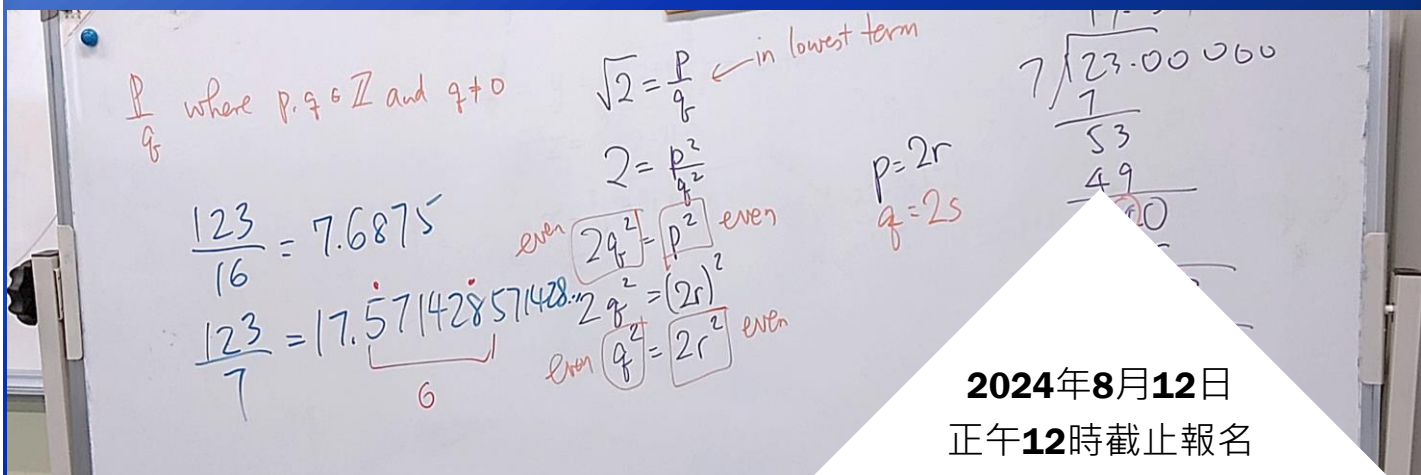 p/q where p, q ∈ ℤ and q ≠ 0
123/16 = 7.6875
123/7 = 17.5̇71428̇571428...
6
√2 = p/q ← in lowest term
2 = p²/q²
even 2q² = p² even
2q² = (2r)²
even q² = 2r² even
p = 2r
q = 2s
7 123.00 000
7
53
49
0
2024年8月12日
正午12時截止報名